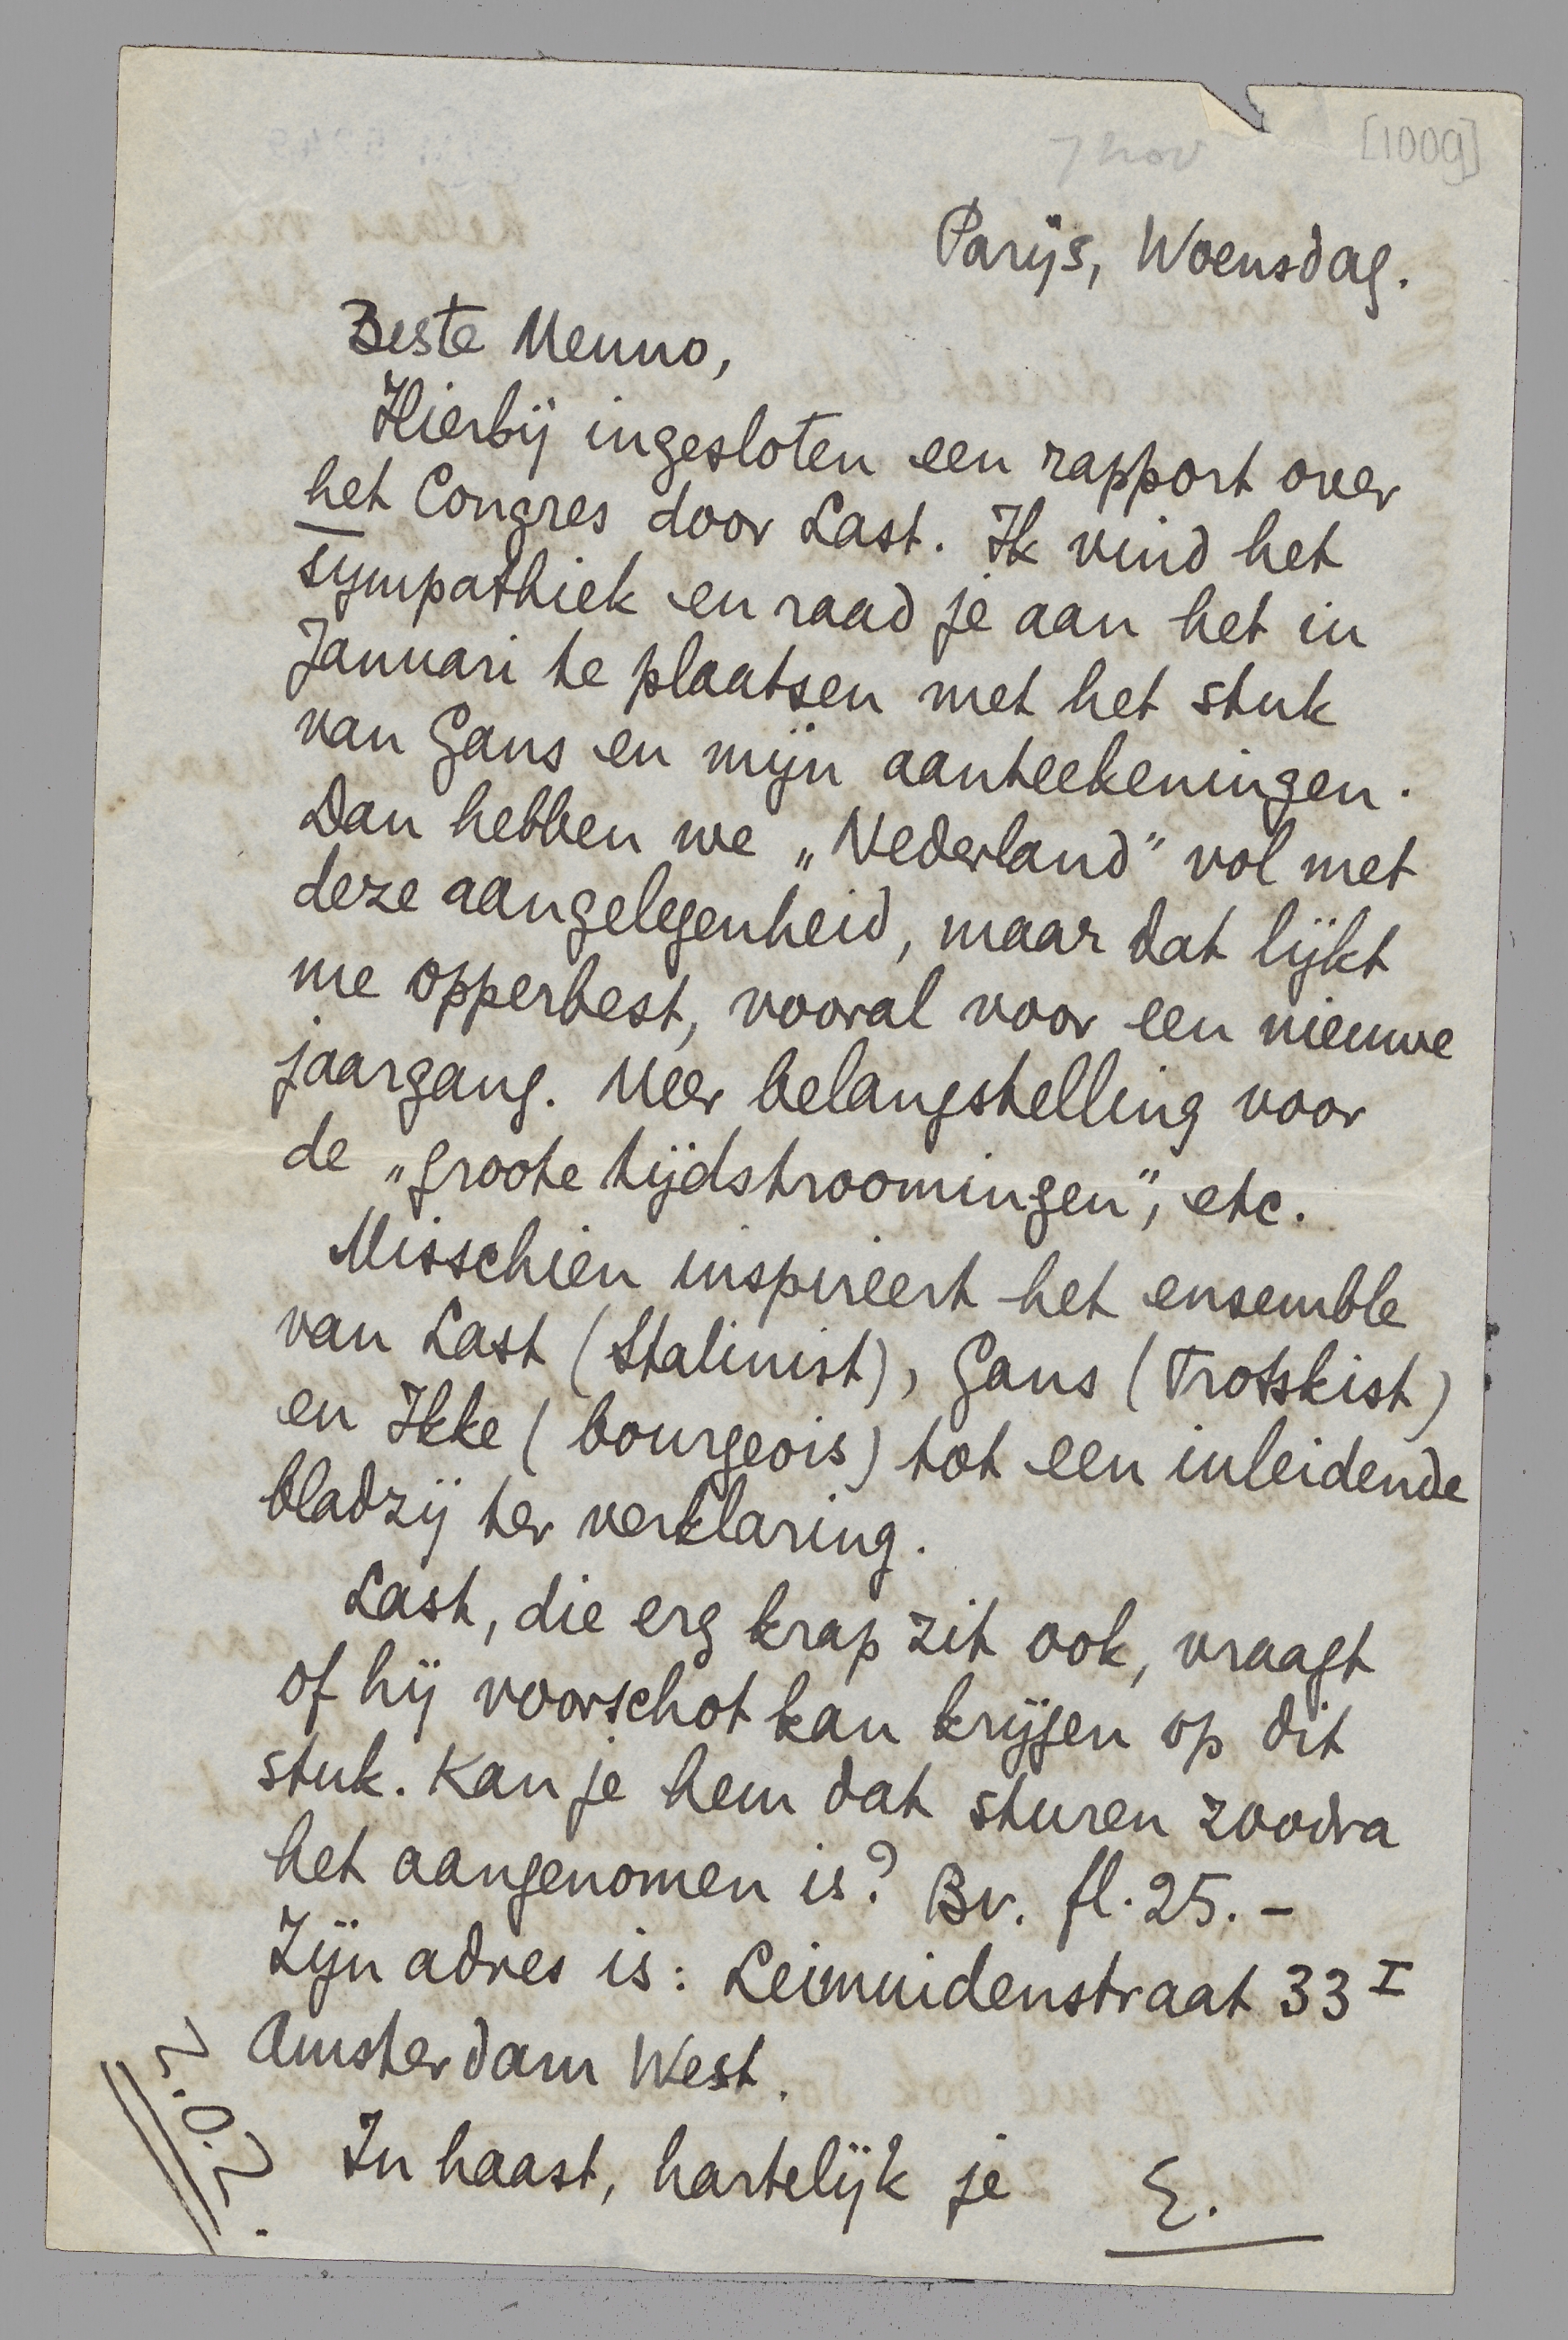 7 nov
[1009]
Parijs, Woensdag.
Beste Menno,
Hierbij ingesloten een rapport over
het Congres door Last. Ik vind het
sympathiek en raad je aan het in
Januari te plaatsen met het stuk
van Gans en mijn aanteekeningen.
Dan hebben we „Nederland" vol met
deze aangelegenheid, maar dat lijkt
me opperbest, vooral voor een nieuwe
jaargang. Meer belangstelling voor
de „groote tijdstroomingen", etc.
Misschien inspireert het ensemble
van Last (Stalinist), Gans (Trotskist)
en Ikke (bourgeois) tot een inleidende
bladzij ter verklaring.
Last, die erg krap zit ook, vraagt
of hij voorschot kan krijgen op dit
stuk. Kan je hem dat sturen zoodra
het aangenomen is? Bv. fl. 25.-
Zijn adres is: Leimuidenstraat 33 I
Amsterdam West.
In haast, hartelijk je E.
Z.O.Z.